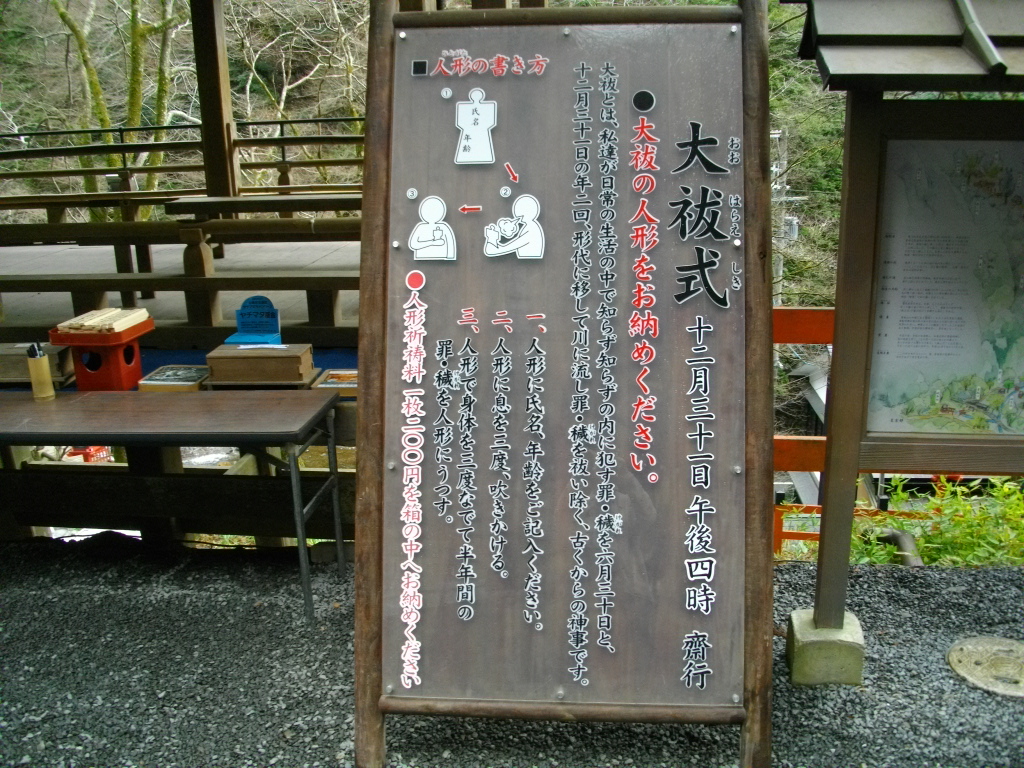 大祓式 十二月三十一日 午後四時 齋行
おお はらえ しき
●大祓の人形をお納めください。
大祓とは、私達が日常の生活の中で知らず知らずの内に犯す罪・穢を六月三十日と、
十二月三十一日の年二回、形代に移して川に流し罪・穢を祓い除く、古くからの神事です。
■人形の書き方
ひとがた
①
氏名
年齢
②
③
一、人形に氏名、年齢をご記入ください。
二、人形に息を三度、吹きかける。
三、人形で身体を三度なでて半年間の
罪・穢を人形にうつす。
●人形祈祷料 一枚二〇〇円を箱の中へお納めください